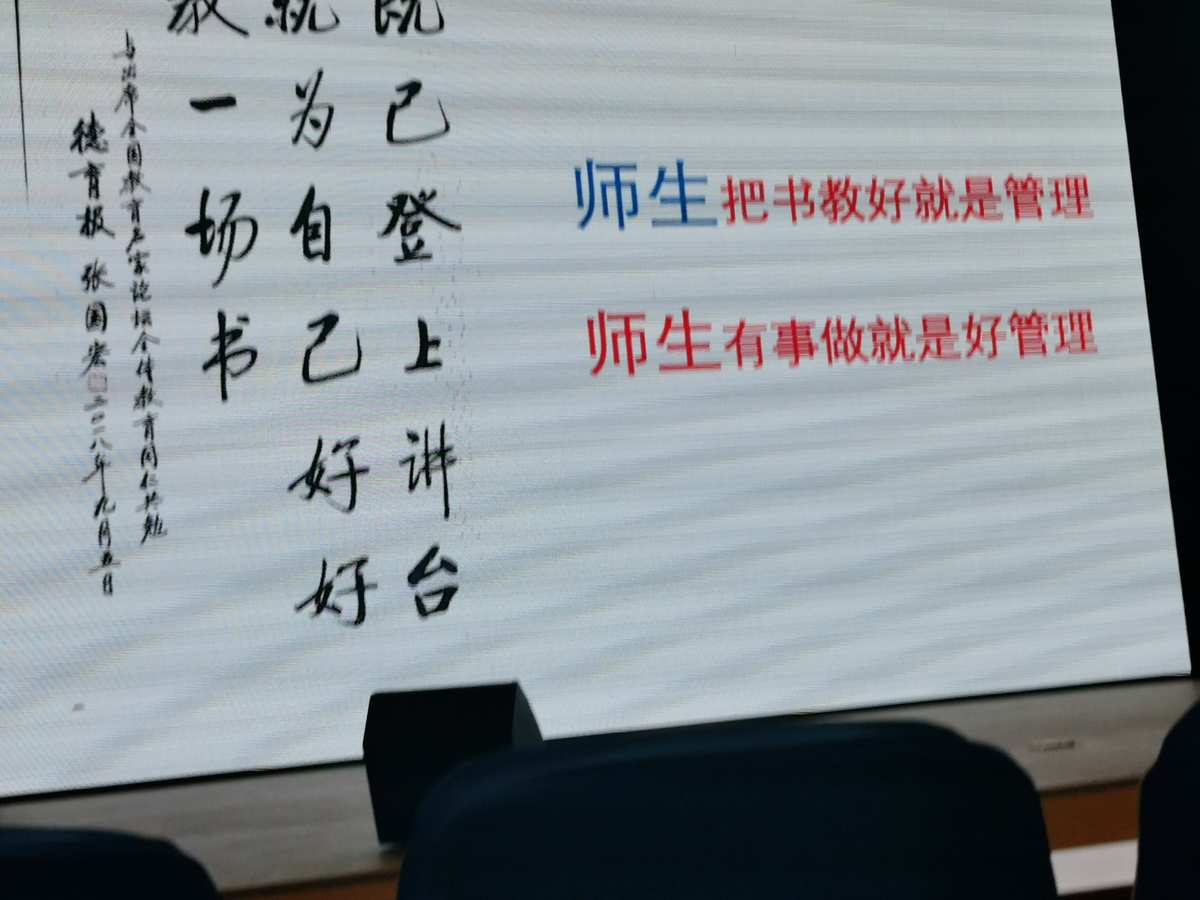 既已登上讲台
就为自己好好
教一场书
与出席全国教育名家论坛全体教育同仁共勉
德育报 张国宏 二〇一八年九月五日
师生把书教好就是管理
师生有事做就是好管理